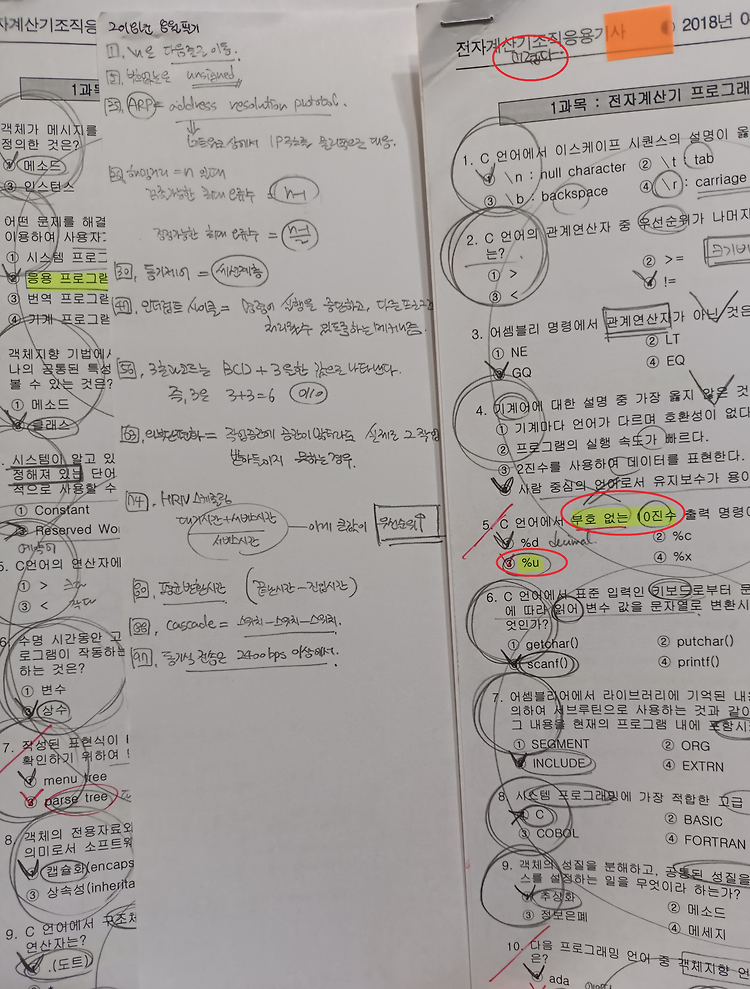 전자계산기조직응
1과목
객체가 메시지를
정의한 것은?
① 메소드
③ 인스턴스
어떤 문제를 해결
이용하여 사용자
① 시스템 프로그
② 응용 프로그램
③ 번역 프로그
④ 기계 프로그
객체지향 기법에서
나의 공통된 특성
볼 수 있는 것은?
① 메소드
클래스
시스템이 알고 있
정해져 있는 단어
적으로 사용할 수
① Constant
③ Reserved Wo
예약어
5. C언어의 연산자에
① >
③ <
6. 수명 시간동안 고
로그램이 작동하는
하는 것은?
① 변수
③ 상수
7. 작성된 표현식이
확인하기 위하여
① menu tree
③ parse tree
8. 객체의 전용자료와
의미로서 소프트웨
① 캡슐화(encaps
③ 상속성(inherita
9. C 언어에서 구조체
연산자는?
① .(도트)
2018년 응용필기
1, \n은 다음줄로 이동.
5, 부호없는은 unsigned
25, ARP = address resolution protocol.
네트워크 상에서 IP주소를 물리적으로 대응.
해밍거리 = n 일때
검출가능한 최대 오류수 = n-1
정정가능한 최대 오류수 = n-1/2
30, 동기제어 = 세션계층
인터럽트 사이클 = 명령어 실행을 중단하고, 다른 프로그
처리할수 있도록하는 메커니즘.
3초과코드는 BCD + 3을한 값으로 나타낸다.
즉, 3은 3+3=6 0110
외부단편화 = 작업공간에 공간이 많더라도 실제로 그 작업
받아들이지 못하는경우.
74, HRN 스케줄링
대기시간+서비스시간
서비스시간
이게 큰값이 우선순위↑
평균 반환시간 (끝난시간-진입시간)
cascade = 스위치-스위치-스위치.
동기식 전송은 2400bps 이상에서.
전자계산기조직응용기사 2018년 0
1과목 : 전자계산기 프로그래
1. C 언어에서 이스케이프 시퀀스의 설명이 옳
① \n : null character ② \t : tab
③ \b : backspace ④ \r : carriage
2. C 언어의 관계연산자 중 우선순위가 나머지
는?
① > ② >=
③ < ④ !=
3. 어셈블리 명령에서 관계연산자가 아닌 것은
① NE ② LT
③ GQ ④ EQ
4. 기계어에 대한 설명 중 가장 옳지 않은 것
① 기계마다 언어가 다르며 호환성이 없다
② 프로그램의 실행 속도가 빠르다.
③ 2진수를 사용하여 데이터를 표현한다.
④ 사람 중심의 언어로서 유지보수가 용이
5. C 언어에서 부호 없는 10진수 출력 명령어
① %d decimal ② %c
③ %u ④ %x
6. C 언어에서 표준 입력인 키보드로부터 문
에 따라 읽어 변수 값을 문자열로 변환시
엇인가?
① getchar() ② putchar()
③ scanf() ④ printf()
7. 어셈블리어에서 라이브러리에 기억된 내용
의하여 서브루틴으로 사용하는 것과 같이
그 내용을 현재의 프로그램 내에 포함시
① SEGMENT ② ORG
③ INCLUDE ④ EXTRN
8. 시스템 프로그래밍에 가장 적합한 고급
① C ② BASIC
③ COBOL ④ FORTRAN
9. 객체의 성질을 분해하고, 공통된 성질을
스를 설정하는 일을 무엇이라 하는가?
① 추상화 ② 메소드
③ 정보은폐 ④ 메세지
10. 다음 프로그래밍 언어 중 객체지향 언
은?
① ada